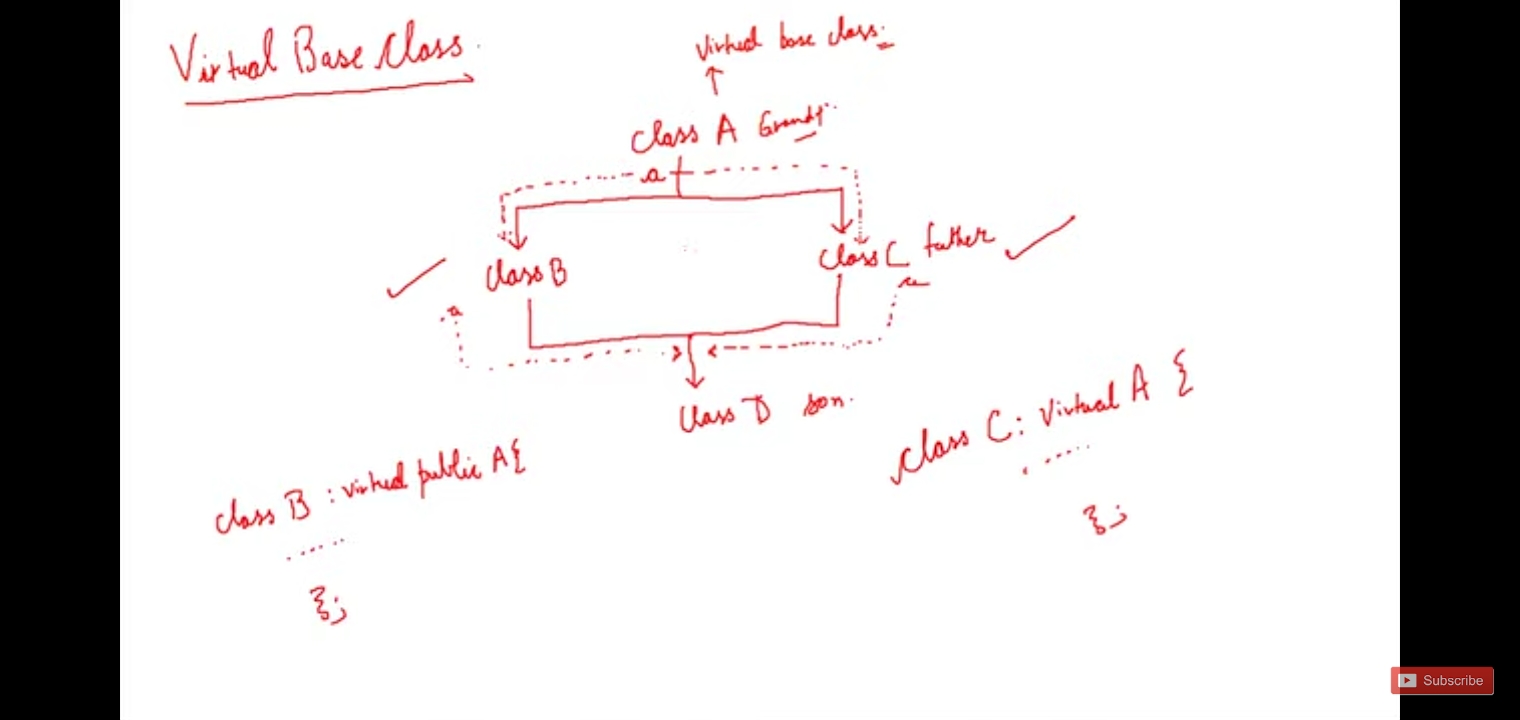 Virtual Base Class.
virtual base class.
Class A
a
Class B
Class C father
a
Class D son.
class B : virtual public A{
......
};
class C : Virtual A {
......
};
Subscribe